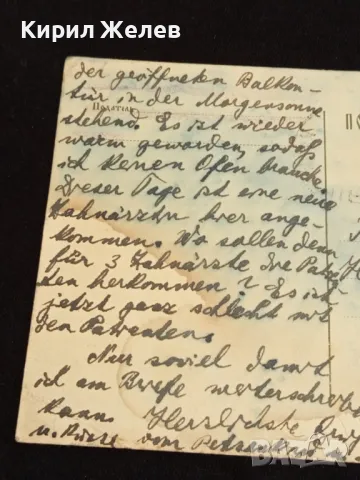 Кирил Желев
der geöffneten Balkon-
tür in der Morgensonne
stehend. Es ist wieder
warm geworden, sodaß
ich keinen Ofen brauche.
Dieser Tage ist eine neue
Zahnärztin hier ange-
kommen. Wo sollen denn
für 3 Zahnärzte die Patien-
ten herkommen? Es ist
jetzt ganz schlecht mit
den Patienten.
Nur soviel damit
ich am Briefe weiterschreiben
kann. Herzlichste
u. Küsse vom
bazar